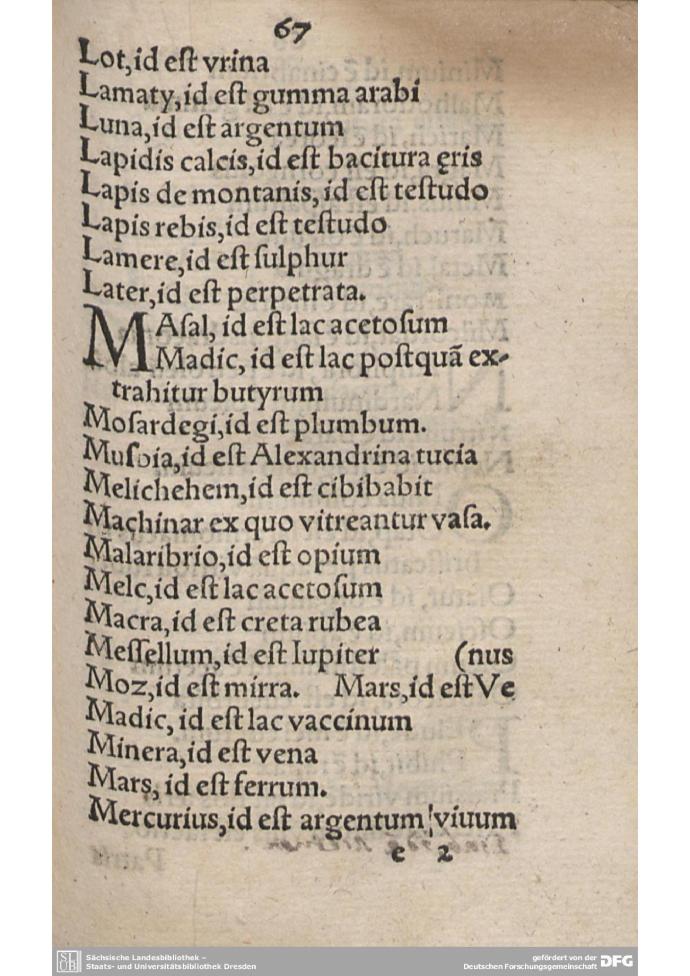 67
Lot,id eſt vrina
Lamaty,id eſt gumma arabi
Luna,id eſt argentum
Lapidis calcis,id eſt bacitura ęris
Lapis de montanis, id eſt teſtudo
Lapis rebis,id eſt teſtudo
Lamere,id eſt ſulphur
Later,id eſt perpetrata.
MAſal, id eſt lac acetoſum
Madic, id eſt lac poſtquã ex-
trahitur butyrum
Moſardegi,id eſt plumbum.
id eſt Alexandrina tucia
Melichehem,id eſt cibibabit
Machinar ex quo vitreantur vaſa.
Malaribrio,id eſt opium
Melc,id eſt lac acetoſum
Macra,id eſt creta rubea
Meſſellum,id eſt Iupiter (nus
Moz,id eſt mirra. Mars,id eſt Ve
Madic, id eſt lac vaccinum
Minera,id eſt vena
Mars, id eſt ferrum.
Mercurius,id eſt argentum viuum
e 2
SLUB
Sächsische Landesbibliothek –
Staats- und Universitätsbibliothek Dresden
gefördert von der
Deutschen Forschungsgemeinschaft DFG